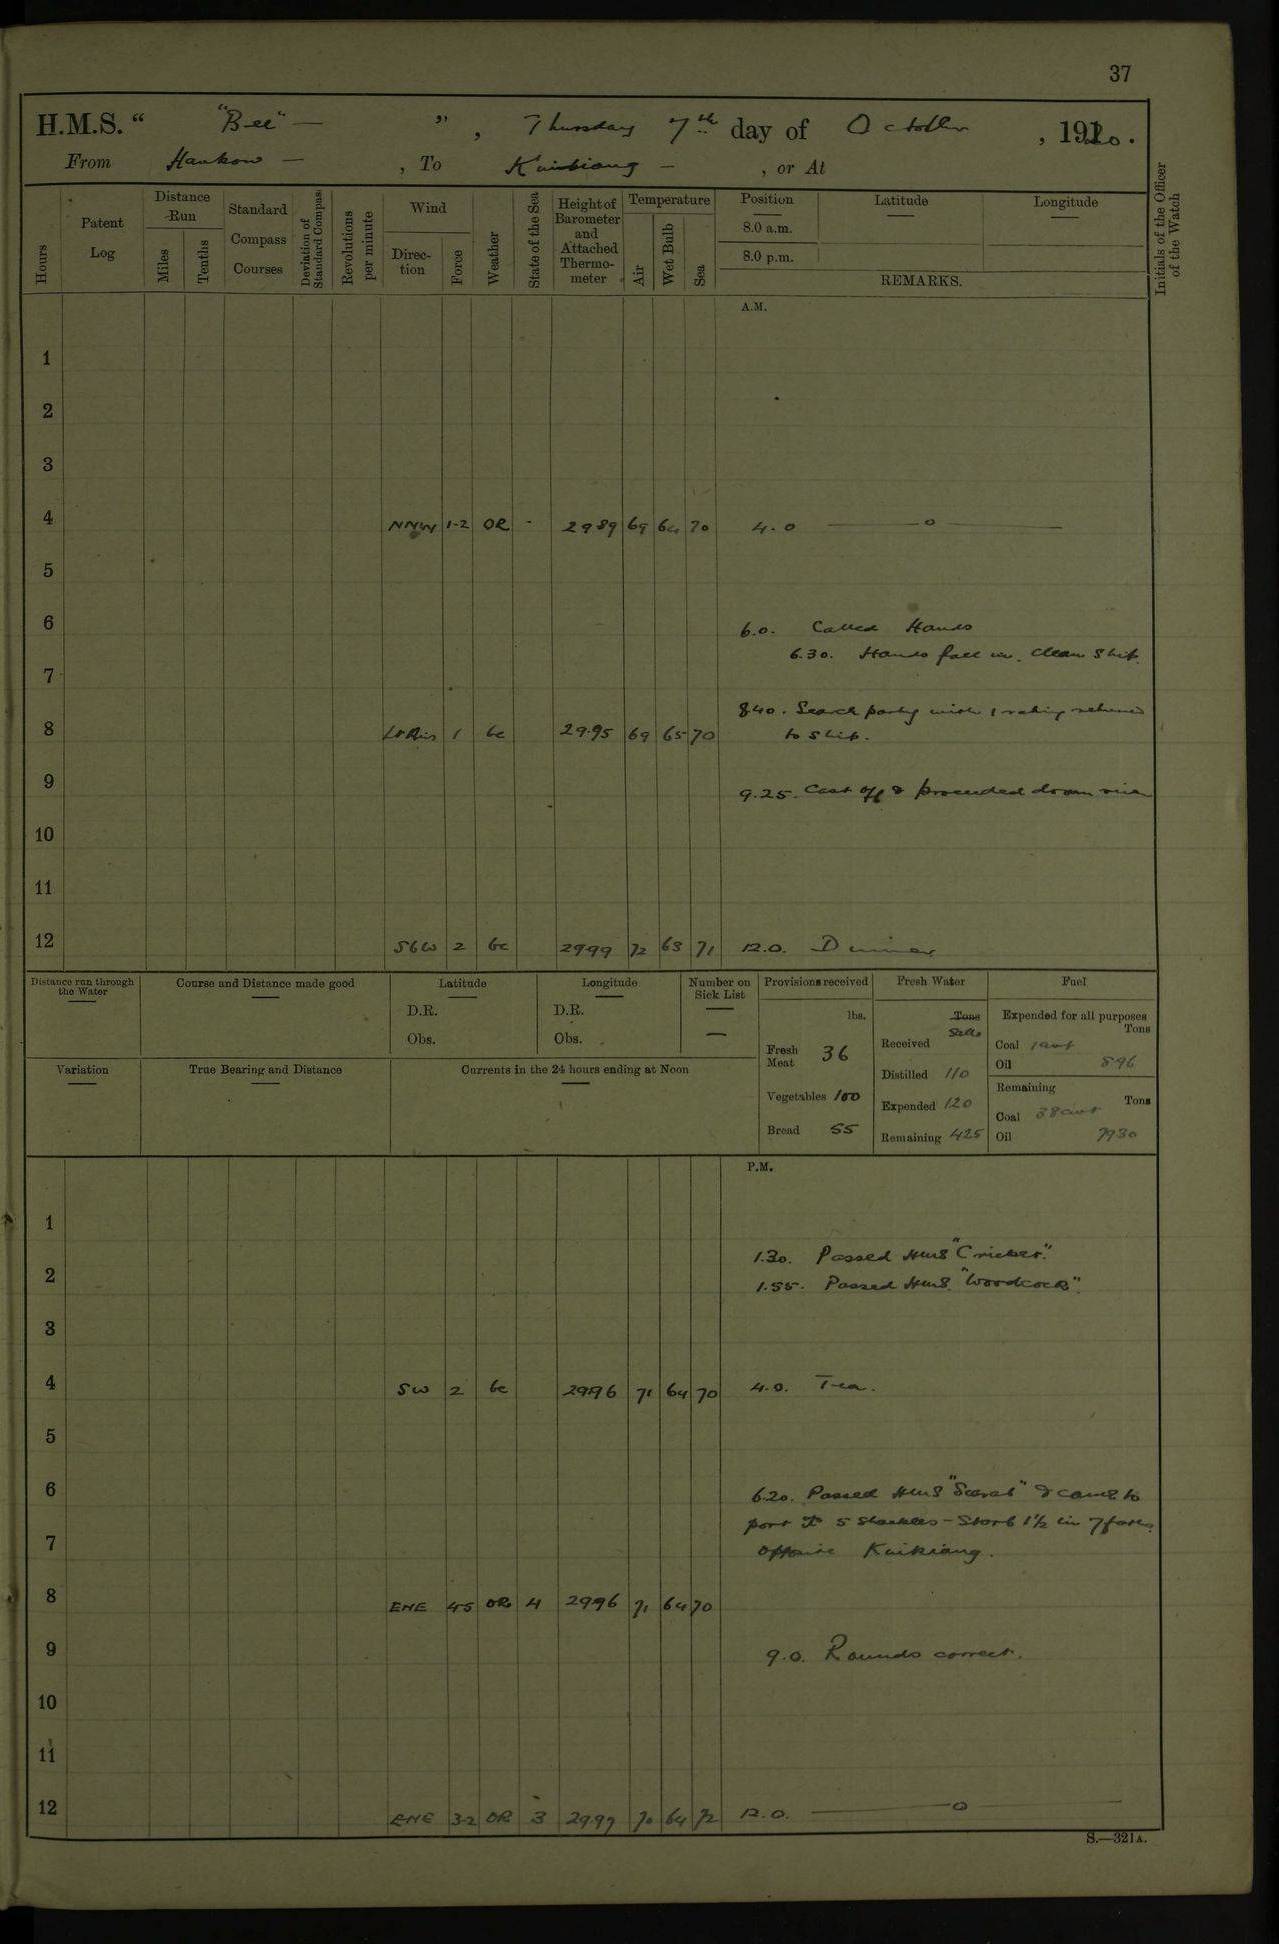 37
H.M.S. " "Bee" — " , Thursday 7th day of October , 1920.
From Hankow — , To Kiukiang — , or At
Hours
Patent Log
Distance Run
Miles
Tenths
Standard Compass Courses
Deviation of Standard Compass
Revolutions per minute
Wind
Direction
Force
Weather
State of the Sea
Height of Barometer and Attached Thermometer
Temperature
Air
Wet Bulb
Sea
Position
8.0 a.m.
8.0 p.m.
Latitude
Longitude
REMARKS.
Initials of the Officer of the Watch
A.M.
1
2
3
4 NNW 1-2 OR - 2989 69 64 70 4.0 —— o ——
5
6 6.0. Called Hands
6.30. Hands fall in. Clean Ship.
7
8.40. Search party with 1 rating returned
8 Lt Airs 1 bc 29.95 69 65 70 to ship.
9 9.25. Cast off & proceeded down river
10
11
12 SbW 2 bc 2999 72 63 71 12.0. Dinner
Distance run through the Water
Course and Distance made good
Latitude
D.R.
Obs.
Longitude
D.R.
Obs.
Number on Sick List
—
Provisions received
lbs.
Fresh Meat 36
Vegetables 100
Bread 55
Fresh Water
Tons
Galls
Received
Distilled 110
Expended 120
Remaining 425
Fuel
Expended for all purposes
Tons
Coal 1 cwt
Oil 896
Remaining
Tons
Coal 38 cwt
Oil 7930
Variation
True Bearing and Distance
Currents in the 24 hours ending at Noon
P.M.
1
1.30. Passed HMS "Cricket".
2 1.55. Passed HMS. "Woodcock".
3
4 SW 2 bc 2996 71 64 70 4.0. Tea.
5
6 6.20. Passed HMS "Scarab" & came to
port 5 Shackles - Starb 1½ in 7 faths.
7 opposite Kiukiang.
8 ENE 4-5 OR 4 2996 71 64 70
9 9.0. Rounds correct.
10
11
12 ENE 3-2 OR 3 29.97 70 64 72 12.0. —— o ——
S.—321A.